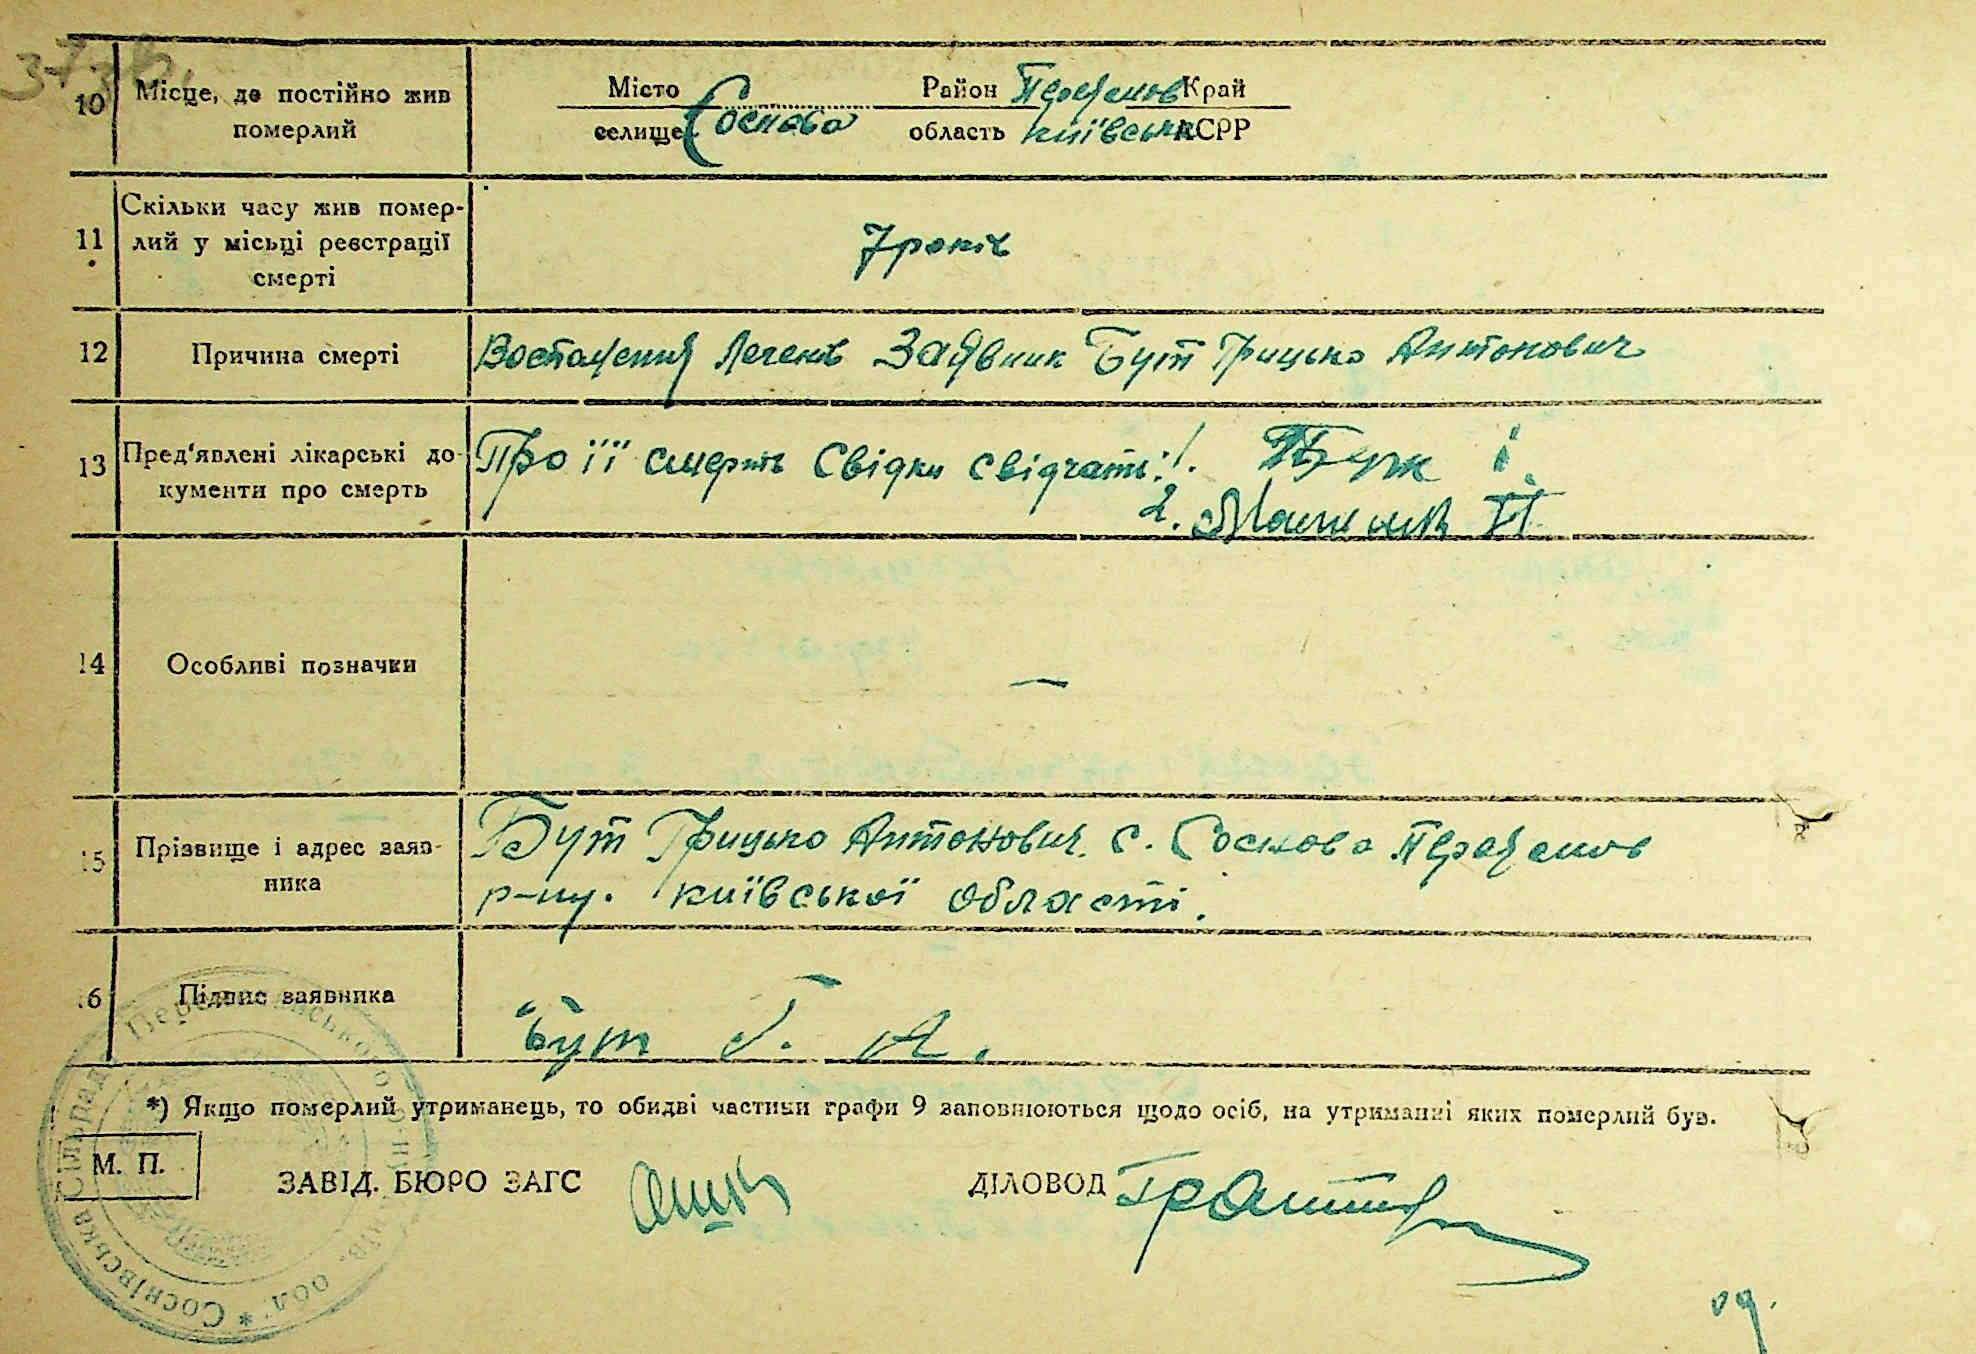 10 Місце, де постійно жив
померлий
Місто
селище Соснова
Район Переяслов Край
область київська АСРР
11 Скільки часу жив помер-
лий у місьці реєстрації
смерті
7 років
12 Причина смерті
Воспаления Легенів Заявник Бут Грицько Антонович
13 Пред'явлені лікарські до-
кументи про смерть
Про її смерть Свідки свідчать: 1. І.
2. П.
14 Особливі позначки
—
15 Прізвище і адрес заяв-
ника
Бут Грицько Антонович. с. Соснова Переяслов
р-ну. київської області.
16 Підпис заявника
Бут Г. А.
*) Якщо померлий утриманець, то обидві частини графи 9 заповнюються щодо осіб, на утриманні яких померлий був.
М. П.
ЗАВІД. БЮРО ЗАГС
ДІЛОВОД
Соснівська Сільрада Переяславського р-ну Київ. обл. *